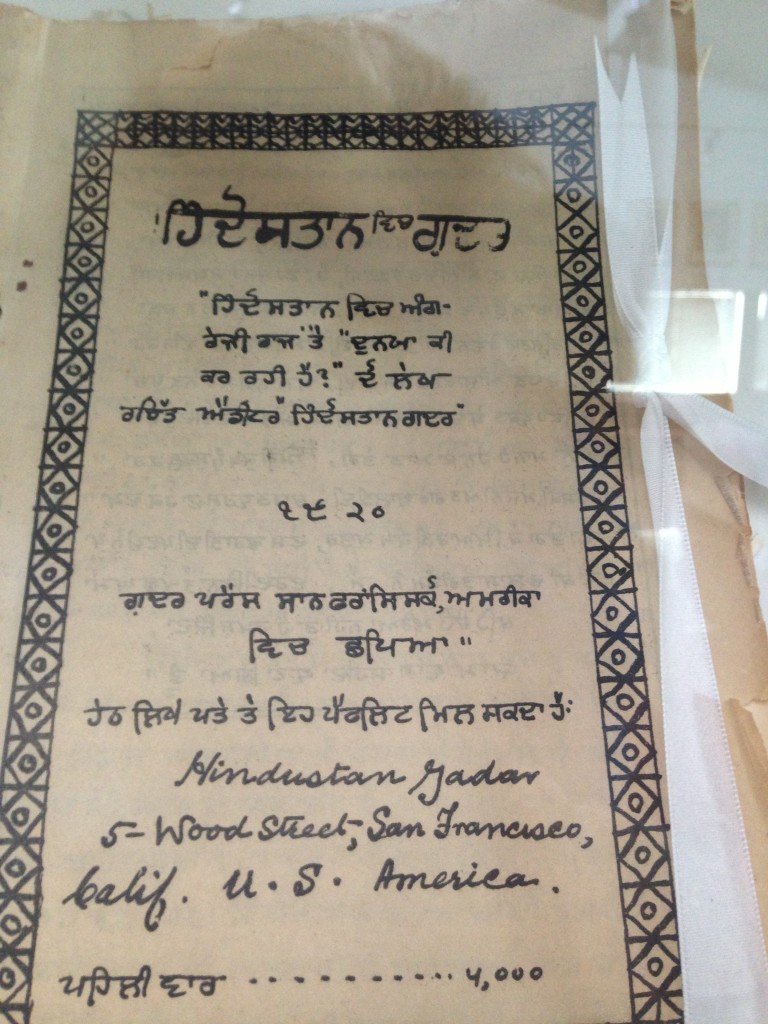 ਹਿੰਦੋਸਤਾਨ ਵਿਚ ਗ਼ਦਰ
"ਹਿੰਦੋਸਤਾਨ ਵਿਚ ਅੰਗ-
ਰੇਜ਼ੀ ਰਾਜ" ਤੈ "ਦੁਨਯਾ ਕੀ
ਕਰ ਰਹੀ ਹੈ?" ਦੇ ਲੇਖ
ਰਚਿੱਤ ਐਡੀਟਰ "ਹਿੰਦੋਸਤਾਨ ਗਦਰ"
੧੯੨੦
ਗ਼ਦਰ ਪਰੈਸ ਸਾਨਫਰਾਂਸਿਸਕੋ, ਅਮਰੀਕਾ
ਵਿਚ ਛਪਿਆ"
ਹੇਠ ਲਿਖੇ ਪਤੇ ਤੇ ਇਹ ਪੈਫਲਿਟ ਮਿਲ ਸਕਦਾ ਹੈ:
Hindustan Gadar
5- Wood Street, San Francisco,
Calif. U. S. America.
ਪਹਿਲੀ ਵਾਰ ........... ੫,੦੦੦